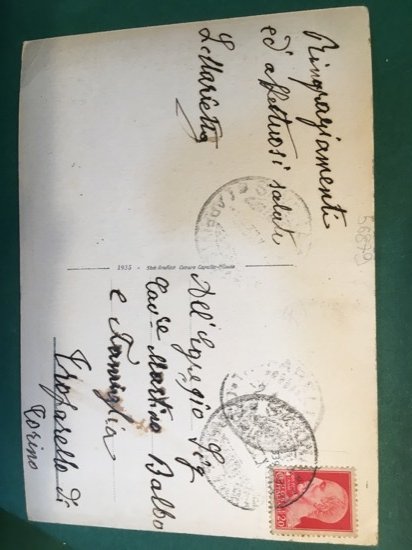 Ringraziamenti
ed affettuosi saluti
L. Marietta
56879
1935 - Stab. Grafico Cesare Capello - Milano
All'Egregio Sig
Cav. Martino Balbo
e Famiglia
Trofarello di
Torino
20